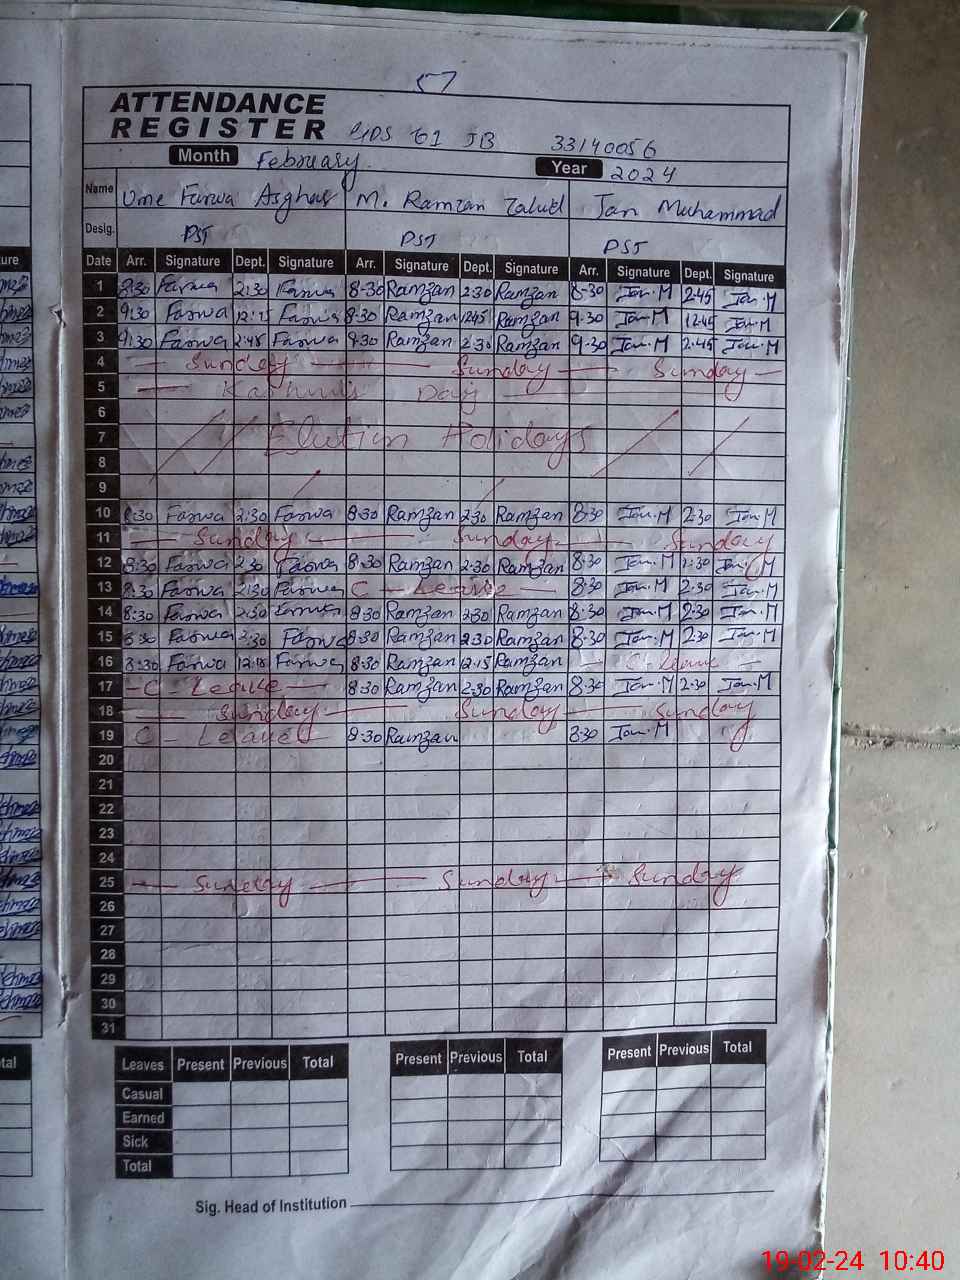 57
ATTENDANCE
REGISTER GPS 61 JB 33140056
Month February. Year 2024
Name Ume Farwa Asghar M. Ramzan Zahid Jan Muhammad
Desig. PST PST PST
Date Arr. Signature Dept. Signature Arr. Signature Dept. Signature Arr. Signature Dept. Signature
1 8:30 Farwa 2:30 Farwa 8-30 Ramzan 2:30 Ramzan 8-30 Jan.M 2:45 Jan.M
2 9:30 Farwa 12:15 Farwa 8:30 Ramzan 1245 Ramzan 9.30 Jan.M 12:45 Jan.M
3 9:30 Farwa 2:45 Farwa 9:30 Ramzan 2:30 Ramzan 9-30 Jan.M 2:45 Jan.M
4 Sunday Sunday Sunday
5 Kashmir Day
6
7 Election Holidays
8
9
10 8:30 Farwa 2:30 Farwa 8:30 Ramzan 2:30 Ramzan 8:30 Jan.M 2:30 Jan.M
11 Sunday Sunday Sunday
12 8:30 Farwa 2:30 Farwa 8:30 Ramzan 2:30 Ramzan 8:30 Jan.M 2:30 Jan.M
13 8:30 Farwa 2:30 Farwa C - Leave 8:30 Jan.M 2:30 Jan.M
14 8:30 Farwa 2:30 Farwa 8:30 Ramzan 2:30 Ramzan 8:30 Jan.M 2:30 Jan.M
15 8:30 Farwa 2:30 Farwa 8:30 Ramzan 2:30 Ramzan 8:30 Jan.M 2:30 Jan.M
16 8:30 Farwa 12:15 Farwa 8:30 Ramzan 12:15 Ramzan - C-leave -
17 - C - Leave - 8:30 Ramzan 2:30 Ramzan 8:30 Jan.M 2:30 Jan.M
18 Sunday Sunday Sunday
19 C - Leave 8:30 Ramzan 8:30 Jan.M
20
21
22
23
24
25 Sunday Sunday Sunday
26
27
28
29
30
31
Leaves Present Previous Total Present Previous Total Present Previous Total
Casual
Earned
Sick
Total
Sig. Head of Institution
19-02-24 10:40